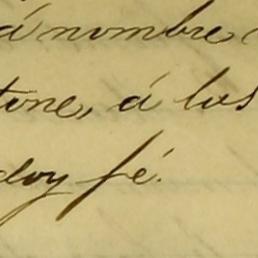 á nombre
tone, á los
doy fé.